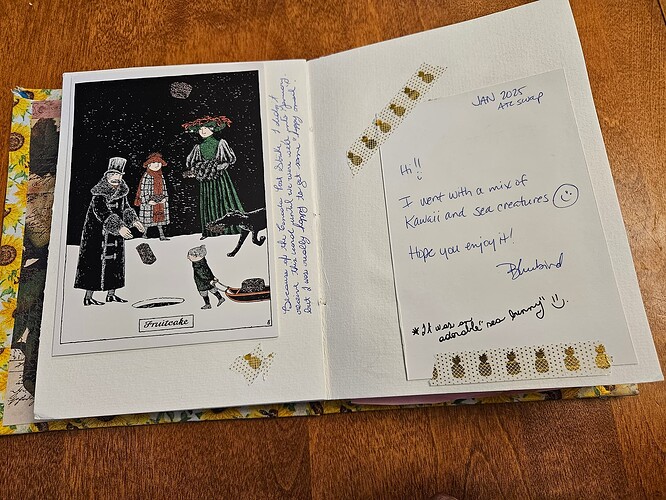 Fruitcake
4
Because of the Canada Post Strike, I didn't
receive this card until we were well into January
but I was really happy to get some happy mail!
JAN 2025
ATC SWAP
Hi!!
I went with a mix of
Kawaii and sea creatures
Hope you enjoy it!
Bluebird
*It was an
adorable "sea bunny"